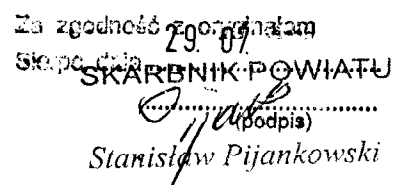 Za zgodność z oryginałem
Sierpc dnia 29. 07.
SKARBNIK POWIATU
(podpis)
Stanisław Pijankowski